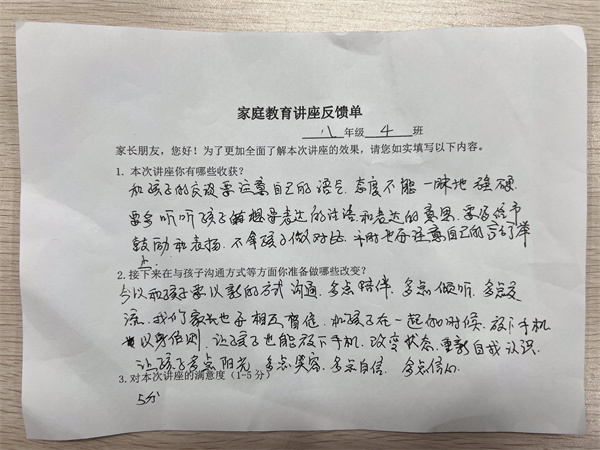 家庭教育讲座反馈单
八 年级 4 班
家长朋友，您好！为了更加全面了解本次讲座的效果，请您如实填写以下内容。
1. 本次讲座你有哪些收获？
和孩子的交流要注意自己的语气，态度不能一味地强硬，
要多听听孩子想表达的话语和表达的意思，要多给予
鼓励和表扬，不拿孩子做对比，平时也要注意自己的言行举
止。
2. 接下来在与孩子沟通方式等方面你准备做哪些改变？
今后和孩子要以新的方式沟通，多点陪伴，多点倾听，多点交
流，我们家长也要相互督促，和孩子在一起的时候，放下手机
以身作则，让孩子也能放下手机，改变状态，重新自我认识，
让孩子多点阳光，多点笑容，多点自信，多点信心
3. 对本次讲座的满意度（1-5 分）
5分